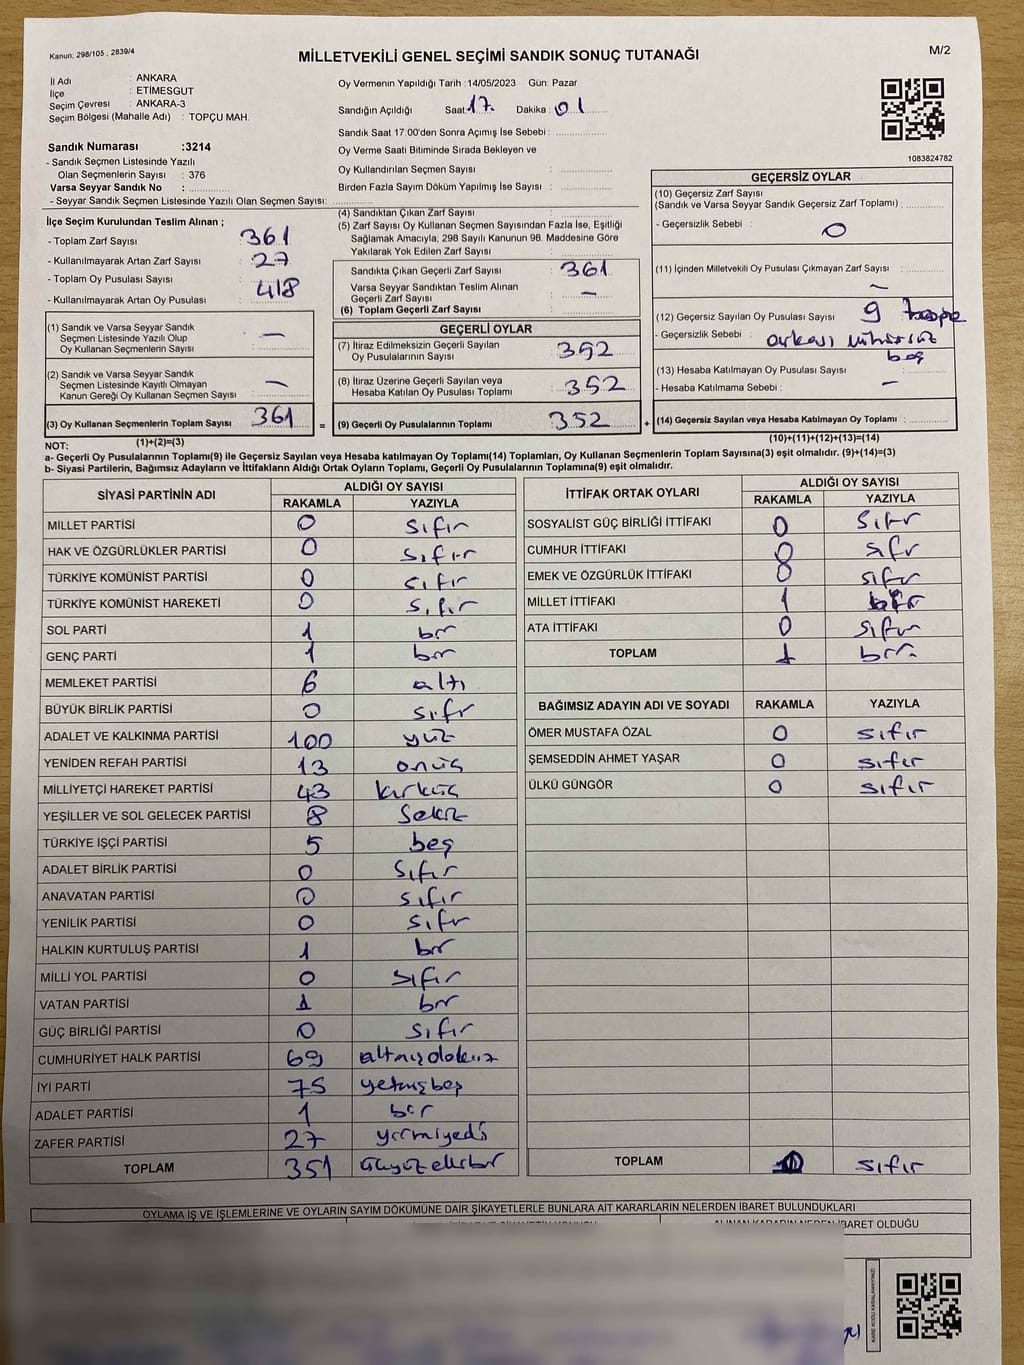 Kanun: 298/105 , 2839/4
MİLLETVEKİLİ GENEL SEÇİMİ SANDIK SONUÇ TUTANAĞI
M/2
İl Adı : ANKARA
İlçe : ETİMESGUT
Seçim Çevresi : ANKARA-3
Seçim Bölgesi (Mahalle Adı) : TOPÇU MAH.
Sandık Numarası :3214
- Sandık Seçmen Listesinde Yazılı
Olan Seçmenlerin Sayısı : 376
Varsa Seyyar Sandık No :
- Seyyar Sandık Seçmen Listesinde Yazılı Olan Seçmen Sayısı:
Oy Vermenin Yapıldığı Tarih :14/05/2023 Gün: Pazar
Sandığın Açıldığı Saat: 17 Dakika: 01
Sandık Saat 17:00'den Sonra Açımış İse Sebebi :
Oy Verme Saati Bitiminde Sırada Bekleyen ve
Oy Kullandırılan Seçmen Sayısı :
Birden Fazla Sayım Döküm Yapılmış İse Sayısı :
1083824782
İlçe Seçim Kurulundan Teslim Alınan ;
- Toplam Zarf Sayısı : 361
- Kullanılmayarak Artan Zarf Sayısı : 27
- Toplam Oy Pusulası Sayısı : 418
- Kullanılmayarak Artan Oy Pusulası :
(1) Sandık ve Varsa Seyyar Sandık
Seçmen Listesinde Yazılı Olup
Oy Kullanan Seçmenlerin Sayısı : —
(2) Sandık ve Varsa Seyyar Sandık
Seçmen Listesinde Kayıtlı Olmayan
Kanun Gereği Oy Kullanan Seçmen Sayısı : —
(3) Oy Kullanan Seçmenlerin Toplam Sayısı 361 =
(1)+(2)=(3)
(4) Sandıktan Çıkan Zarf Sayısı :
(5) Zarf Sayısı Oy Kullanan Seçmen Sayısından Fazla İse, Eşitliği
Sağlamak Amacıyla, 298 Sayılı Kanunun 98. Maddesine Göre
Yakılarak Yok Edilen Zarf Sayısı :
Sandıkta Çıkan Geçerli Zarf Sayısı : 361
Varsa Seyyar Sandıktan Teslim Alınan
Geçerli Zarf Sayısı : —
(6) Toplam Geçerli Zarf Sayısı :
GEÇERLİ OYLAR
(7) İtiraz Edilmeksizin Geçerli Sayılan
Oy Pusulalarının Sayısı : 352
(8) İtiraz Üzerine Geçerli Sayılan veya
Hesaba Katılan Oy Pusulası Toplamı : 352
(9) Geçerli Oy Pusulalarının Toplamı : 352 +
GEÇERSİZ OYLAR
(10) Geçersiz Zarf Sayısı
(Sandık ve Varsa Seyyar Sandık Geçersiz Zarf Toplamı) :
- Geçersizlik Sebebi : 0
(11) İçinden Milletvekili Oy Pusulası Çıkmayan Zarf Sayısı : —
(12) Geçersiz Sayılan Oy Pusulası Sayısı : 9
- Geçersizlik Sebebi : arkası mühürsüz
boş
(13) Hesaba Katılmayan Oy Pusulası Sayısı :
- Hesaba Katılmama Sebebi : —
(14) Geçersiz Sayılan veya Hesaba Katılmayan Oy Toplamı :
(10)+(11)+(12)+(13)=(14)
NOT:
a- Geçerli Oy Pusulasının Toplamı(9) ile Geçersiz Sayılan veya Hesaba katılmayan Oy Toplamı(14) Toplamları, Oy Kullanan Seçmenlerin Toplam Sayısına(3) eşit olmalıdır. (9)+(14)=(3)
b- Siyasi Partilerin, Bağımsız Adayların ve İttifakların Aldığı Ortak Oyların Toplamı, Geçerli Oy Pusulalarının Toplamına(9) eşit olmalıdır.
SİYASİ PARTİNİN ADI ALDIĞI OY SAYISI
RAKAMLA YAZIYLA
MİLLET PARTİSİ 0 sıfır
HAK VE ÖZGÜRLÜKLER PARTİSİ 0 sıfır
TÜRKİYE KOMÜNİST PARTİSİ 0 sıfır
TÜRKİYE KOMÜNİST HAREKETİ 0 sıfır
SOL PARTİ 1 bir
GENÇ PARTİ 1 bir
MEMLEKET PARTİSİ 6 altı
BÜYÜK BİRLİK PARTİSİ 0 sıfır
ADALET VE KALKINMA PARTİSİ 100 yüz
YENİDEN REFAH PARTİSİ 13 onüç
MİLLİYETÇİ HAREKET PARTİSİ 43 kırküç
YEŞİLLER VE SOL GELECEK PARTİSİ 8 sekiz
TÜRKİYE İŞÇİ PARTİSİ 5 beş
ADALET BİRLİK PARTİSİ 0 sıfır
ANAVATAN PARTİSİ 0 sıfır
YENİLİK PARTİSİ 0 sıfır
HALKIN KURTULUŞ PARTİSİ 1 bir
MİLLİ YOL PARTİSİ 0 sıfır
VATAN PARTİSİ 1 bir
GÜÇ BİRLİĞİ PARTİSİ 0 sıfır
CUMHURİYET HALK PARTİSİ 69 altmışdokuz
İYİ PARTİ 75 yetmişbeş
ADALET PARTİSİ 1 bir
ZAFER PARTİSİ 27 yirmiyedi
TOPLAM 351 üçyüzellibir
İTTİFAK ORTAK OYLARI ALDIĞI OY SAYISI
RAKAMLA YAZIYLA
SOSYALİST GÜÇ BİRLİĞİ İTTİFAKI 0 sıfır
CUMHUR İTTİFAKI 0 sıfır
EMEK VE ÖZGÜRLÜK İTTİFAKI 0 sıfır
MİLLET İTTİFAKI 1 bir
ATA İTTİFAKI 0 sıfır
TOPLAM 1 bir
BAĞIMSIZ ADAYIN ADI VE SOYADI RAKAMLA YAZIYLA
ÖMER MUSTAFA ÖZAL 0 sıfır
ŞEMSEDDİN AHMET YAŞAR 0 sıfır
ÜLKÜ GÜNGÖR 0 sıfır
TOPLAM 0 sıfır
OYLAMA İŞ VE İŞLEMLERİNE VE OYLARIN SAYIM DÖKÜMÜNE DAİR ŞİKAYETLERLE BUNLARA AİT KARARLARIN NELERDEN İBARET BULUNDUKLARI
ALINAN KARARIN NEDEN İBARET OLDUĞU